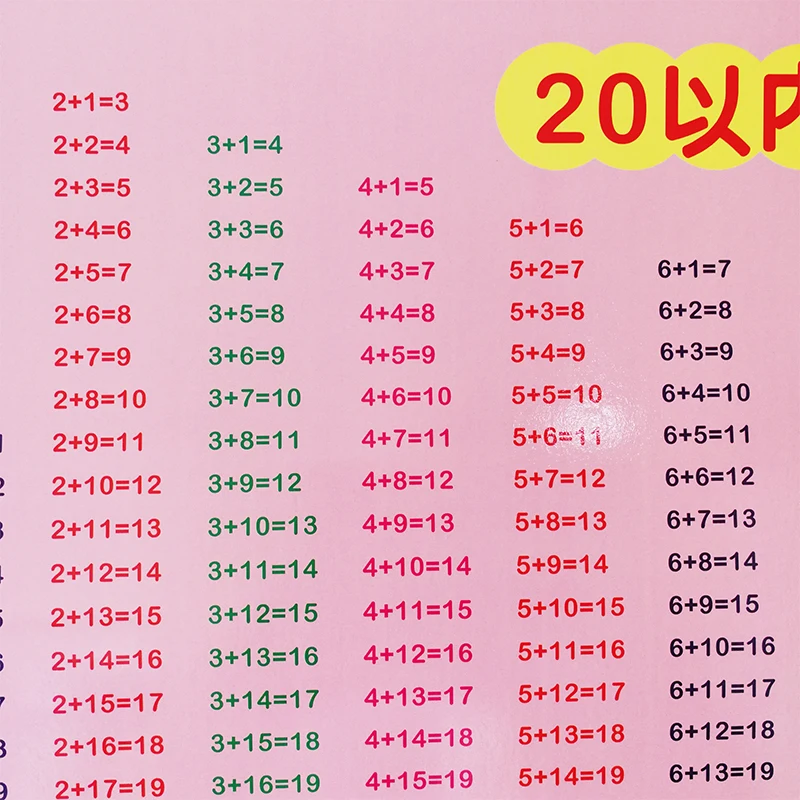 20以内
2+1=3
2+2=4
2+3=5
2+4=6
2+5=7
2+6=8
2+7=9
2+8=10
2+9=11
2+10=12
2+11=13
2+12=14
2+13=15
2+14=16
2+15=17
2+16=18
2+17=19
3+1=4
3+2=5
3+3=6
3+4=7
3+5=8
3+6=9
3+7=10
3+8=11
3+9=12
3+10=13
3+11=14
3+12=15
3+13=16
3+14=17
3+15=18
3+16=19
4+1=5
4+2=6
4+3=7
4+4=8
4+5=9
4+6=10
4+7=11
4+8=12
4+9=13
4+10=14
4+11=15
4+12=16
4+13=17
4+14=18
4+15=19
5+1=6
5+2=7
5+3=8
5+4=9
5+5=10
5+6=11
5+7=12
5+8=13
5+9=14
5+10=15
5+11=16
5+12=17
5+13=18
5+14=19
6+1=7
6+2=8
6+3=9
6+4=10
6+5=11
6+6=12
6+7=13
6+8=14
6+9=15
6+10=16
6+11=17
6+12=18
6+13=19